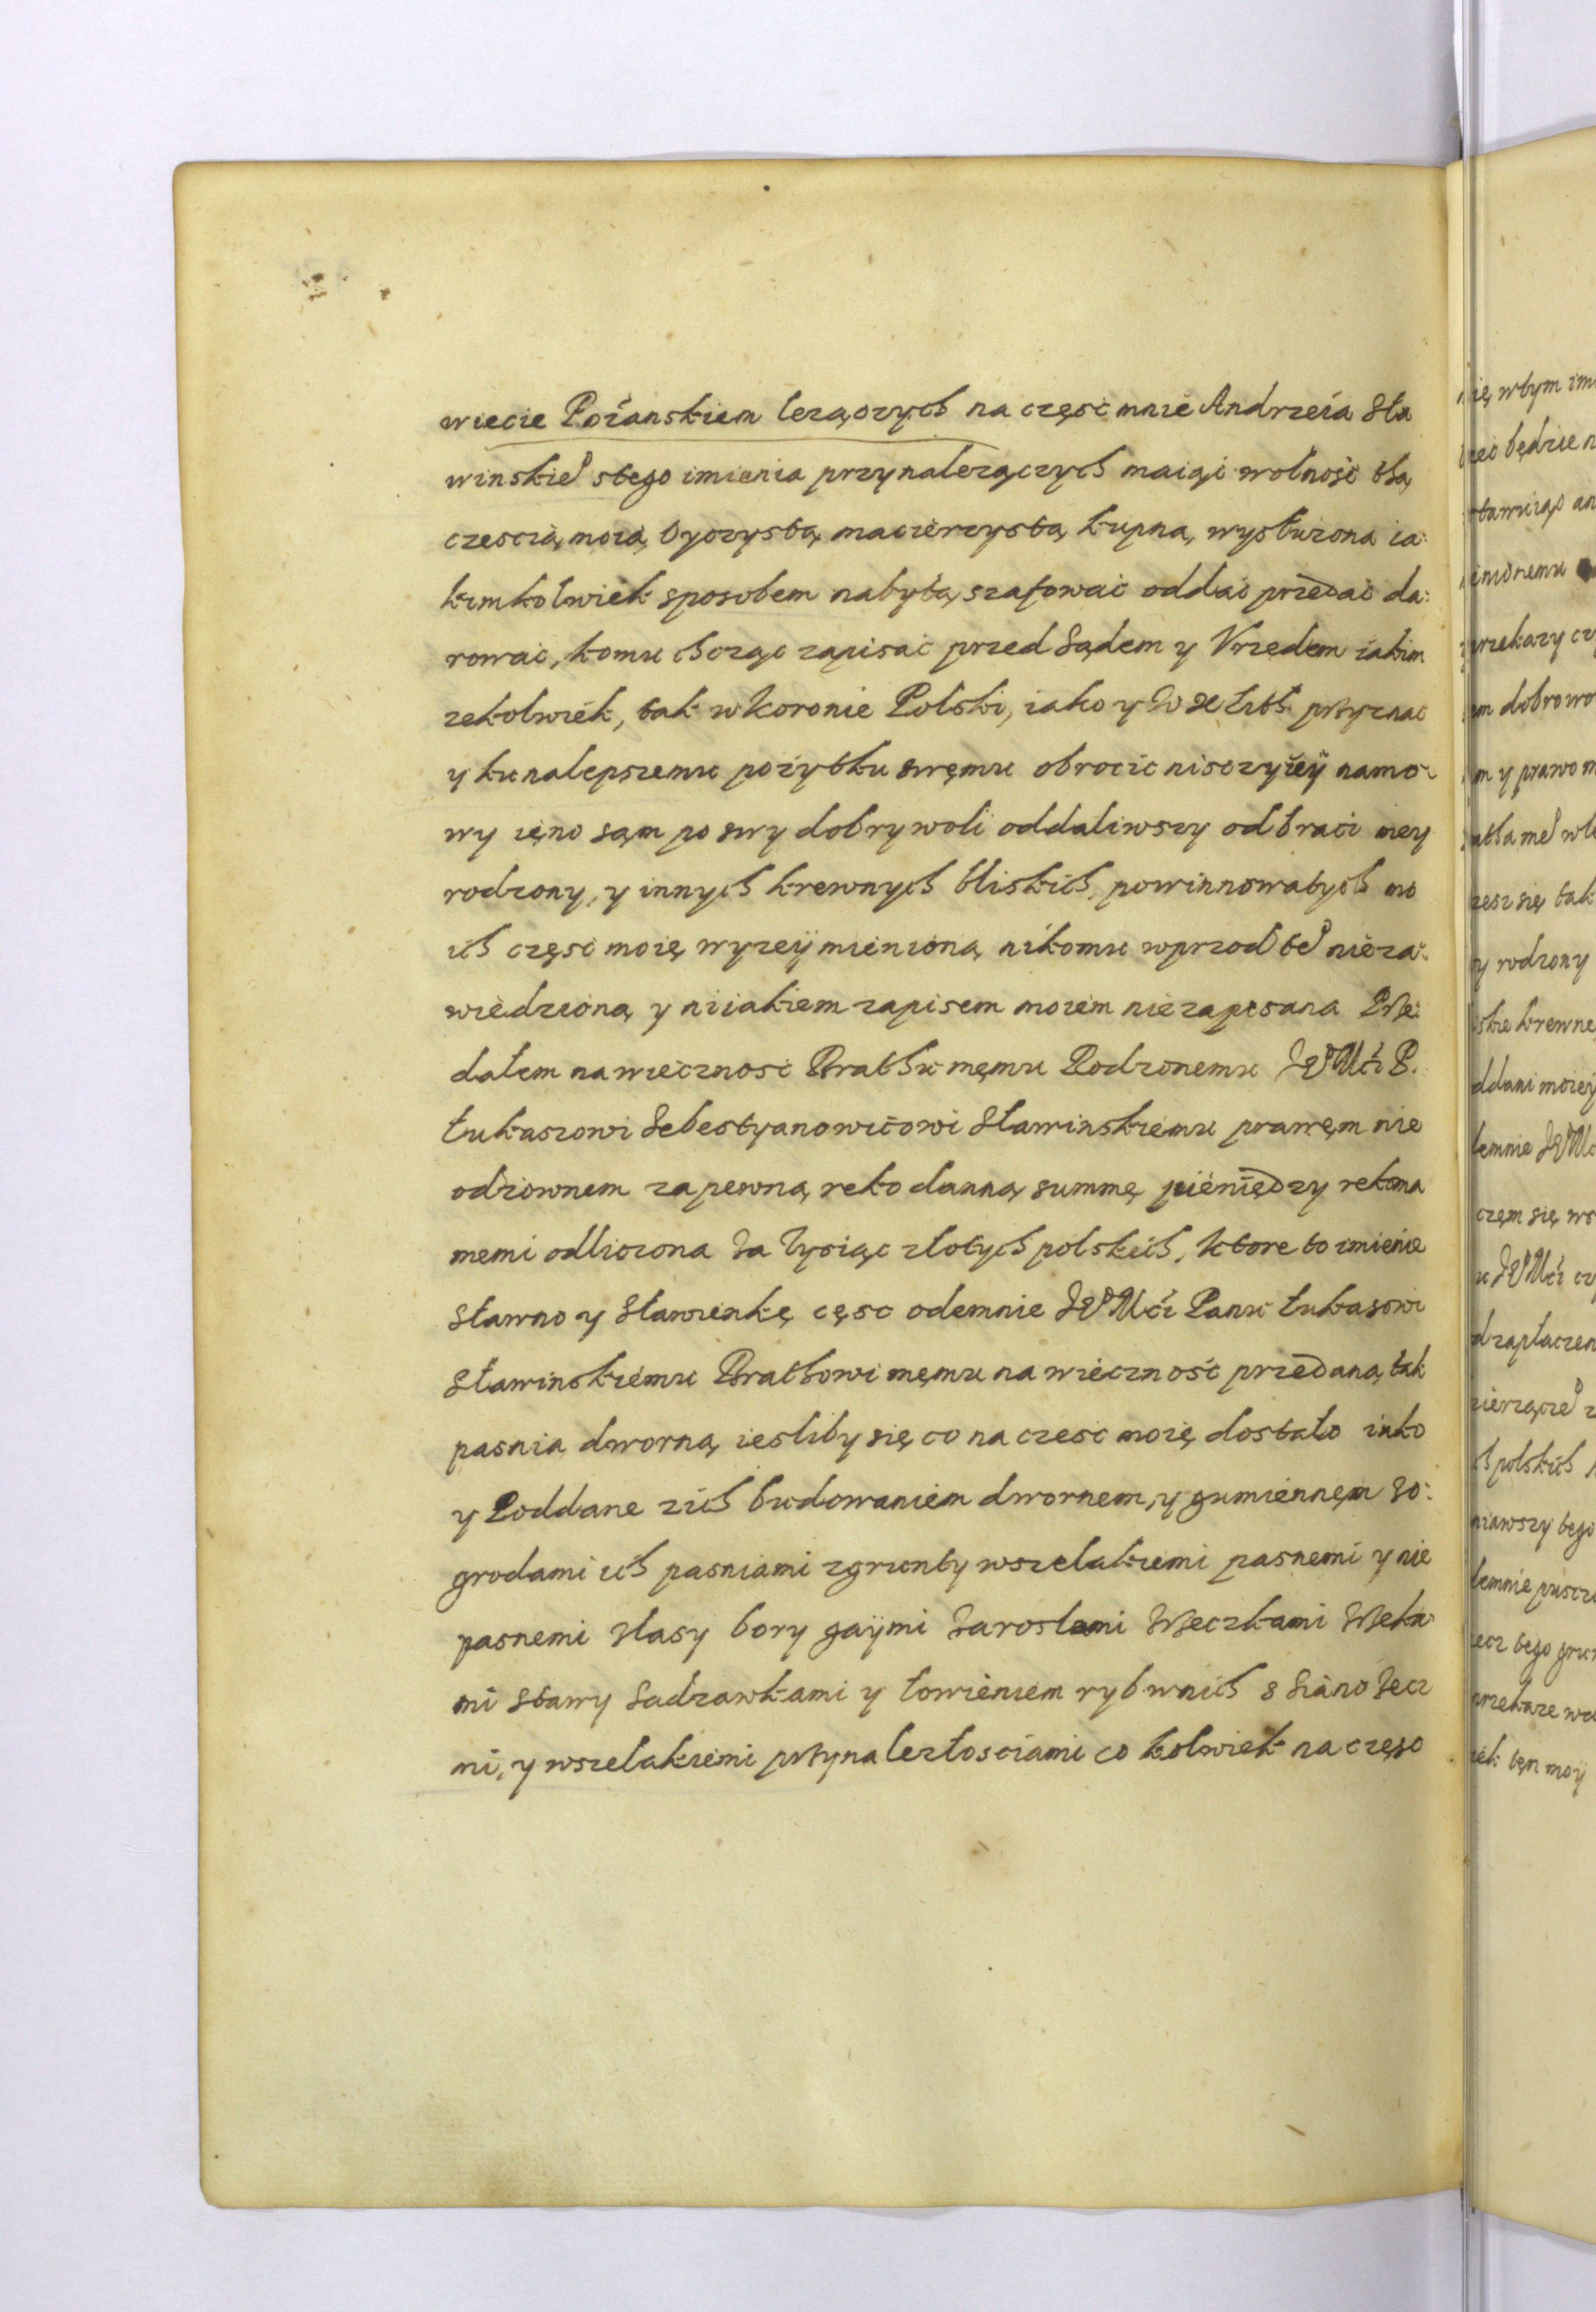 wiecie Pożanskiem lezączych na częsc mnie Andrzeia Sła
winskie° stego imienia przynalezączych maiąc wolnośc thą
czescią moią Oyczystą macierzystą kupna, wysłuzona ia:
kimkolwiek sposobem nabytą szafowac oddac przedac da:
rowac, komu chcząc zapisac przed Sądem y Vrzedem iakim
zekolwiek, tak w Koronie Polski, iako y W X Lith przyznac
y ku nalepszemu pożytku swęmu obrocic nisczyieÿ namo:
wy ięno sąm po swy dobry woli oddaliwszy od braci mey
rodzony, y innych krewnych bliskich, powinnowatych mo
ich częsc moię wyzeÿ mienioną nikomu wprzod te° nieza:
wiedzioną y niiakiem zapisem moiem niezapisana Prze:
dałem na wiecznosc Brathu męmu Rodzonemu JE° Mći P.
Łukaszowi Sebestyanowicowi Sławinskiemu prawęm nie
odzownem za pewną reko danną summę pieniędzy rekoma
memi odliczona Za Tysiąc złotych polskich, Ktore to imienie
Sławno y Sławienkę cęsc odemnie JE° Mći Panu Łukasowi
Sławinskiemu Brathowi męmu na wiecznośc przedaną tak
pasnia dworną iesliby się co na czesc moię dostało iako
y Poddane zich budowaniem dwornem, y gumiennęm Zo:
grodami ich pasniami zgrunty wszelakiemi pasnemi y nie
pasnemi Zlasy bory gaÿmi Zaroslami Rzeczkami Rzeka
mi Stawy Sadzawkami y łowieniem ryb wnich s Siano Zecz
mi, y wszelakiemi przynalezłosciami co kolwiek na częsc
ię wtym imi
będzie n
stawuiąc an
przekazy cz
m dobrowo
m y prawo m
atha me° wł
zesz się tak
y rodzony
skie krewne
ddani moieÿ
emnie JE° Mć
częm się ws
u JE° Mći cz
d zapłaczen
zierzącze° z
ch polskich
niawszy tego
emnie puscz
ecz tego grun
przekaze w
iek tęn moÿ